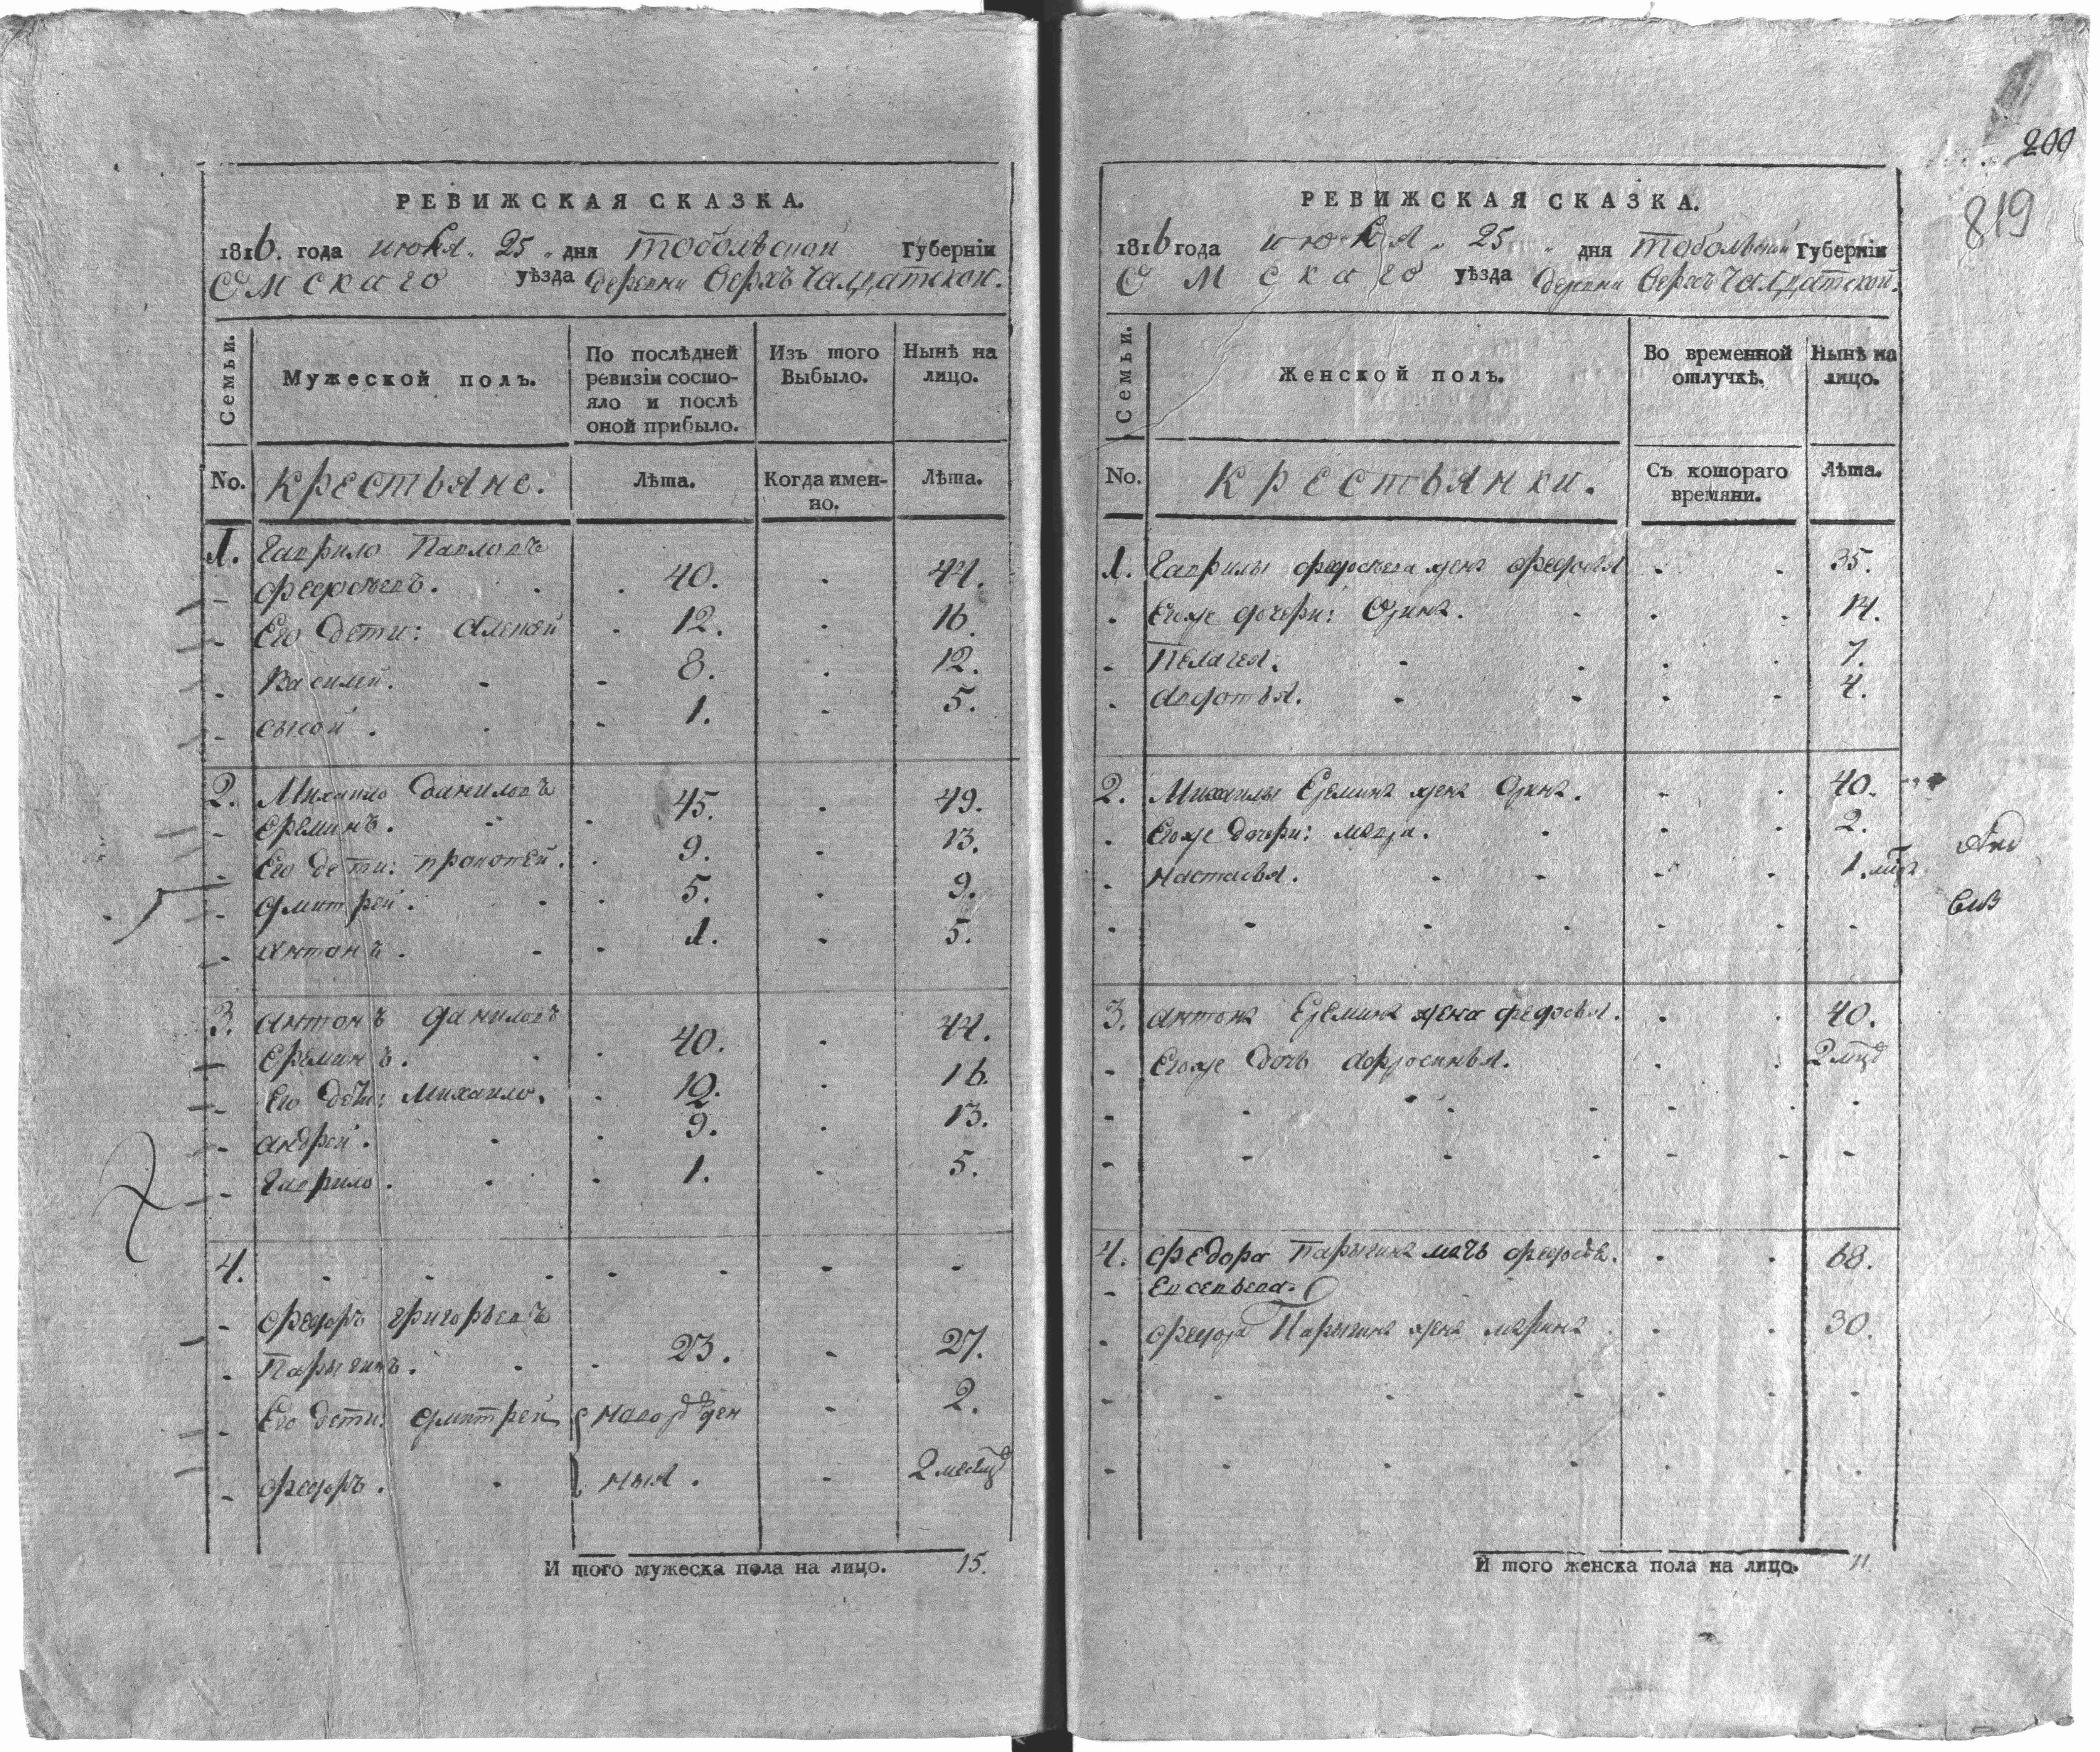 РЕВИЖСКАЯ СКАЗКА.
1816. года июля 25 дня тобольской Губерніи
Омскаго уѣзда деревни верхъ Чалдатской.
Семьи.
Мужеской полъ.
По послѣдней ревизіи состояло и послѣ оной прибыло.
Изъ того Выбыло.
Нынѣ на лицо.
No. Крестьяне. Лѣта. Когда именно. Лѣта.
1. Гаврило Павловъ
федосѣевъ. 40. 44.
Его дети: 12. 16.
Василей. 8. 12.
сысой. 1. 5.
2. Михаило Даниловъ
Ереминъ. 45. 49.
Его дети: прокопей. 9. 13.
дмитрей. 5. 9.
антонъ. 1. 5.
3. антонъ даниловъ
Ереминъ. 40. 44.
Его дѣти: Михаило. 12. 16.
андрей. 9. 13.
Гаврило. 1. 5.
4.
федоръ григорьевъ
Парыгинъ. 23. 27.
Его дети: дмитрей новорожден 2.
федоръ. ныя. 2 месяц
И того мужеска пола на лицо. 15.
200
819
РЕВИЖСКАЯ СКАЗКА.
1816 года июля 25 дня тобольской Губерніи
Омскаго уѣзда деревни верхъ Чалдатской.
Семьи.
Женской полъ.
Во временной отлучкѣ.
Нынѣ на лицо.
No. Крестьянки. Съ котораго времяни. Лѣта.
1. Гаврилы федосѣева жена федосья 35.
Егоже дочери: Орина. 14.
Пелагея. 7.
авдотья. 4.
2. Михаилы Еремина жена Орина. 40.
Егоже дочери: мавра. 2.
настасья. 1.
3. антона Еремина жена федосья. 40.
Егоже дочь афросинья. 2 мца
4. федора Парыгина мать федосья 68.
Евсевьева.
федора Парыгина жена марина 30.
И того женска пола на лицо. 11